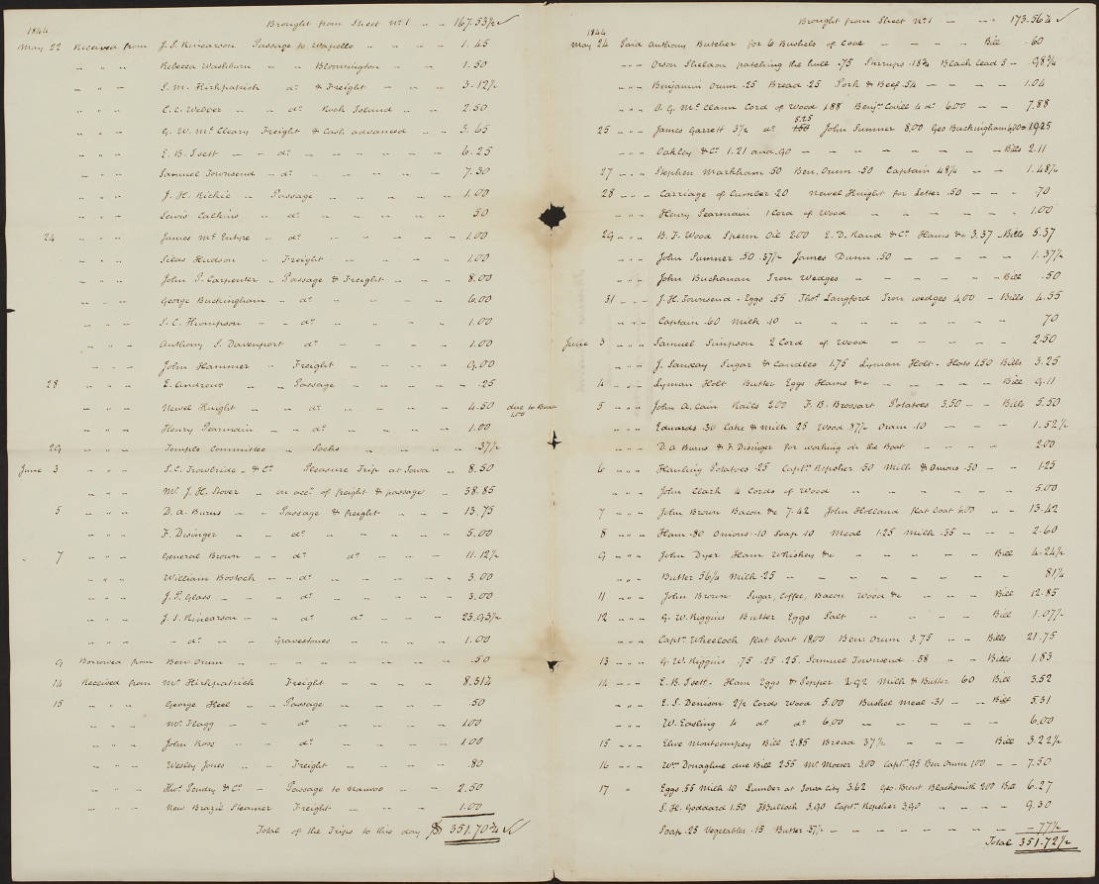 1844
Brought from Sheet No. 1 - - 167.53½ ✓
May 22 Received from J. S. Kinearson Passage to Wapello - - - - 1.45
" " " Rebecca Washburn - - Bloomington - - - - 1.50
" " " S. M. Kirkpatrick do & Freight - - - - 3.12½
" " " C. C. Webber - - do Rock Island - - - 2.50
" " " G. W. McCleary Freight & Cash advanced - - - 3.65
" " " E. B. - - do - - - - 6.25
" " " Samuel Townsend - do - - - - 7.30
" " " J. H. Richie - Passage - - - - 1.00
" " " Lewis Calkins - do - - - - 50
24 " " " James McIntyre - do - - - - 1.00
" " " Silas Hudson - Freight - - - - 1.00
" " " John S. Carpenter - Passage & Freight - - - - 8.00
" " " George Buckingham - do - - - - 6.00
" " " S. C. Thompson - - do - - - - 1.00
" " " Anthony S. Davenport do - - - - 1.00
" " " John Hammer - Freight - - - - 9.00
28 " " " E. Andrews - - Passage - - - - .25
" " " Newel Knight - - do - - - - 4.50 due to
" " " Henry Pearmain - - do - - - - 1.00
29 " " " Temple Committee - Sacks - - - - .37½
June 3 " " " S. C. Trowbridge & Co. Pleasure Trip at Iowa - - 8.50
" " " Mr. J. H. Stover - on acct of freight & passage - 38.85
5 " " " D. A. Burns - - Passage & freight - - - 13.75
" " " F. Disinger - do - - - - 5.00
7 " " " General Brown - - do do - - - 11.12½
" " " William Bostock - - do - - - - 3.00
" " " J. P. Glass - - do - - - - 3.00
" " " J. S. Kinearson - - do do - - - 23.93½
" " " - do - - Gravestones - - - - 1.00
9 Borrowed from Benn Orum - - - - .50
14 Received from Mr. Kirkpatrick Freight - - - - 8.31¼
15 " " " George Heel - - Passage - - - - .50
" " " Mr. Flagg - do - - - - 1.00
" " " John Ross - do - - - - 1.00
" " " Wesley Jones - - Freight - - - - .80
" " " & Co. - Passage to Nauvoo - - - 2.50
" " " New Brazil Steamer Freight - - - - 1.00
Total of the Trips to this day $ 351.70¾ ✓
1844
Brought from Sheet No. 1 - - - 173.56¼ ✓
May 24 Paid Anthony Butcher for 6 Bushels of Coal - - - - Bill .60
" " " Orson Sheldon patching the hull .75 Stirrups .18¾ Black lead 5 - 98¾
" " " Benjamin Orum .25 Bread .25 Pork & Beef .54 - - - 1.04
" " " A. G. McClain Cord of Wood 1.88 Benjn 4 do 6.00 - - 7.88
25 - - - James Garrett 3½ do 5.25 John Sumner 8.00 Geo Buckingham 6.00 19.25
- - - Oakley & Co. 1.21 and .90 - - - - Bills 2.11
27 - - - Stephen Markham .50 Ben. Orum .50 Captain 48½ - - 1.48½
28 - - - Carriage of Lumber .20 Newel Knight for Letter .50 - - 70
- - - Henry Pearmain 1 Cord of Wood - - - - 1.00
29 - - - B. F. Wood Sperm Oil 2.00 E. D. Rand & Co. Hams &c 3.37 - Bills 5.37
- - - John Sumner .50 .37½ James Dunn .50 - - - - 1.37½
- - - John Buchanan Iron Wedges - - - - Bill .50
31 - - - J. H. Townsend - Eggs .55 Thos. Langford Iron wedges 4.00 - Bills 4.55
- - - Captain .60 Milk .10 - - - - 70
June 3 - - - Samuel Simpson 2 Cord of Wood - - - - 2.50
- - - J. Sanxay Sugar & Candles 1.75 Lyman Holt - Hats 1.50 Bills 3.25
4 - - - Lyman Holt Butter Eggs Hams &c - - - - Bill 9.11
5 - - - John A. Cain Rails 2.00 F. B. Brossart Potatoes 3.50 - - Bills 5.50
- - - Edwards .30 Cake & milk .25 Wood .37½ Orum .10 - - 1.52½
- - - D. A. Burns & F. Disinger for working on the Boat - - - 2.00
6 - - - Hauling Potatoes .25 Captn Repsher .50 Milk & Onions .50 - - 1.25
- - - John Clark 4 Cords of Wood - - - - 5.00
7 - - - John Brown Bacon &c 7.42 John Holland flat boat 6.00 - - 13.42
8 - - - Ham .80 Onions .10 Soap .10 Meal 1.25 Milk .35 - - - 2.60
9 - - - John Dyer Ham Whiskey &c - - - - Bill 4.24½
- - - Butter 56¼ Milk .25 - - - - 81¼
11 - - - John Brown Sugar, Coffee, Bacon Wood &c - - - Bill 12.85
12 - - - G. W. Higgins Butter Eggs Salt - - - Bill 1.07½
- - - Captn Wheelock flat boat 18.00 Benn Orum 3.75 - - - Bills 21.75
13 - - - G. W. Higgins .75 .25 .25 Samuel Townsend .58 - - Bills 1.83
14 - - - E. B. - Ham Eggs & Pepper 2.92 Milk & Butter .60 Bill 3.52
- - - E. S. Denison 2½ Cords Wood 5.00 Bushel Meal .31 - - Bill 5.31
- - - W. Easling 4 do do 6.00 - - - - 6.00
15 - - - Montgomery Bill 2.85 Bread 37½ - - - Bill 3.22½
16 - - - Wm. Donaghue due Bill 2.55 Mr. Moeser 3.00 Captn .95 Ben Orum 1.00 - - 7.50
17 - - Eggs .55 Milk .10 Lumber at Iowa City 3.62 Geo. Brout Blacksmith 2.00 Bill 6.27
S. H. Goddard 1.50 H Bullock 3.90 Captn Repsher 3.90 - - - - 9.30
Soap .25 Vegetables .15 Butter .37½ - - - - 77½
Total 351.72½